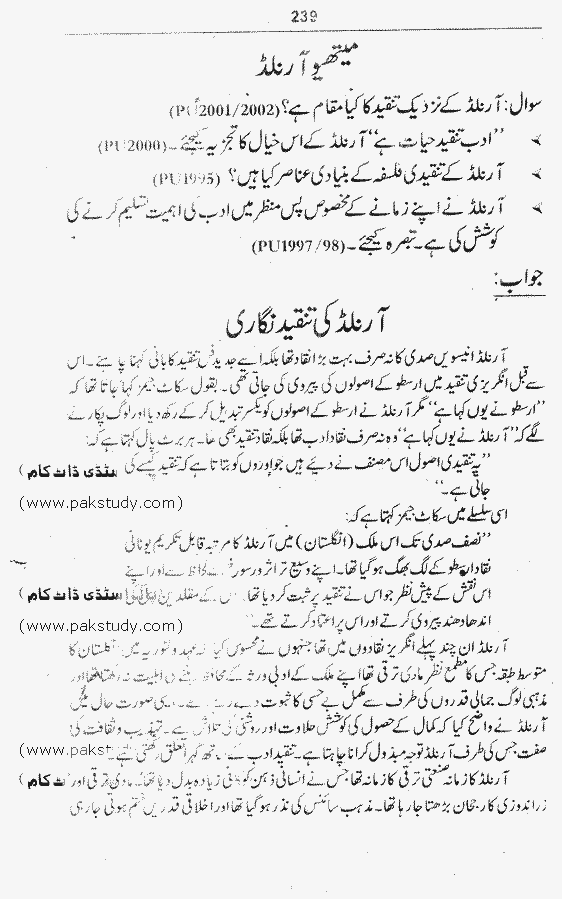 239
میتھیو آرنلڈ
سوال: آرنلڈ کے نزدیک تنقید کا کیا مقام ہے؟ (PU2001/2002)
"ادب تنقید حیات ہے" آرنلڈ کے اس خیال کا تجزیہ کیجئے۔ (PU2000)
آرنلڈ کے تنقیدی فلسفہ کے بنیادی عناصر کیا ہیں؟ (PU1995)
آرنلڈ نے اپنے زمانے کے مخصوص پس منظر میں ادب کی اہمیت تسلیم کرنے کی
کوشش کی ہے۔ تبصرہ کیجئے۔ (PU1997/98)
جواب:
آرنلڈ کی تنقید نگاری
آرنلڈ انیسویں صدی کا نہ صرف بہت بڑا نقاد تھا بلکہ اسے جدید فن تنقید کا بانی کہنا چاہئے۔ اس
سے قبل انگریزی تنقید میں ارسطو کے اصولوں کی پیروی کی جاتی تھی۔ بقول سکاٹ جیمز کہا جاتا تھا کہ
"ارسطو نے یوں کہا ہے" مگر آرنلڈ نے ارسطو کے اصولوں کو یکسر تبدیل کر کے رکھ دیا اور لوگ پکارنے
لگے کہ "آرنلڈ نے یوں کہا ہے" وہ نہ صرف نقاد ادب تھا بلکہ نقاد تنقید بھی تھا۔ ہربرٹ پال کہتا ہے کہ:
"یہ تنقیدی اصول اس مصنف نے دیئے ہیں جو اوروں کو بتاتا ہے کہ تنقید کیسے کی سٹڈی ڈاٹ کام )
جاتی ہے۔"
(www.pakstudy.com)
اسی سلسلے میں سکاٹ جیمز کہتا ہے کہ:
"نصف صدی تک اس ملک (انگلستان) میں آرنلڈ کا مرتبہ قابل تکریم یونانی
نقاد ارسطو کے لگ بھگ ہو گیا تھا۔ اپنے وسیع تر اثر و رسوخ کے لحاظ سے اور اپنے
اس نقش کے پیش نظر جو اس نے تنقید پر ثبت کر دیا تھا۔ اس کے مقلدین سٹڈی ڈاٹ کام )
اندھا دھند پیروی کرتے اور اس پر اعتماد کرتے تھے۔"
(www.pakstudy.com)
آرنلڈ ان چند پہلے انگریز نقادوں میں تھا جنہوں نے محسوس کیا کہ عہد وکٹوریہ میں انگلستان کا
متوسط طبقہ جس کا مطمع نظر مادی ترقی تھا اپنے ملک کے ادبی ورثہ کے محافظ اہلیت نہ رکھتا تھا اور
مذہبی لوگ جمالی قدروں کی طرف سے مکمل بے حسی کا ثبوت دے رہے تھے۔ ایسی صورت حال میں
آرنلڈ نے واضح کیا کہ کمال کے حصول کی کوشش حلاوت اور روشنی کی تلاش ہے۔ تہذیب و ثقافت کی
صفت جس کی طرف آرنلڈ توجہ مبذول کرانا چاہتا ہے۔ تنقید ادب کے ساتھ گہرا تعلق رکھتی ہے۔ (www.pakst
آرنلڈ کا زمانہ صنعتی ترقی کا زمانہ تھا جس نے انسانی ذہن کو کافی زیادہ بدل دیا تھا۔ مادی ترقی اور ٹ کام )
زراندوزی کا رجحان بڑھتا جا رہا تھا۔ مذہب سائنس کی نذر ہو گیا تھا اور اخلاقی قدریں ختم ہوتی جا رہی